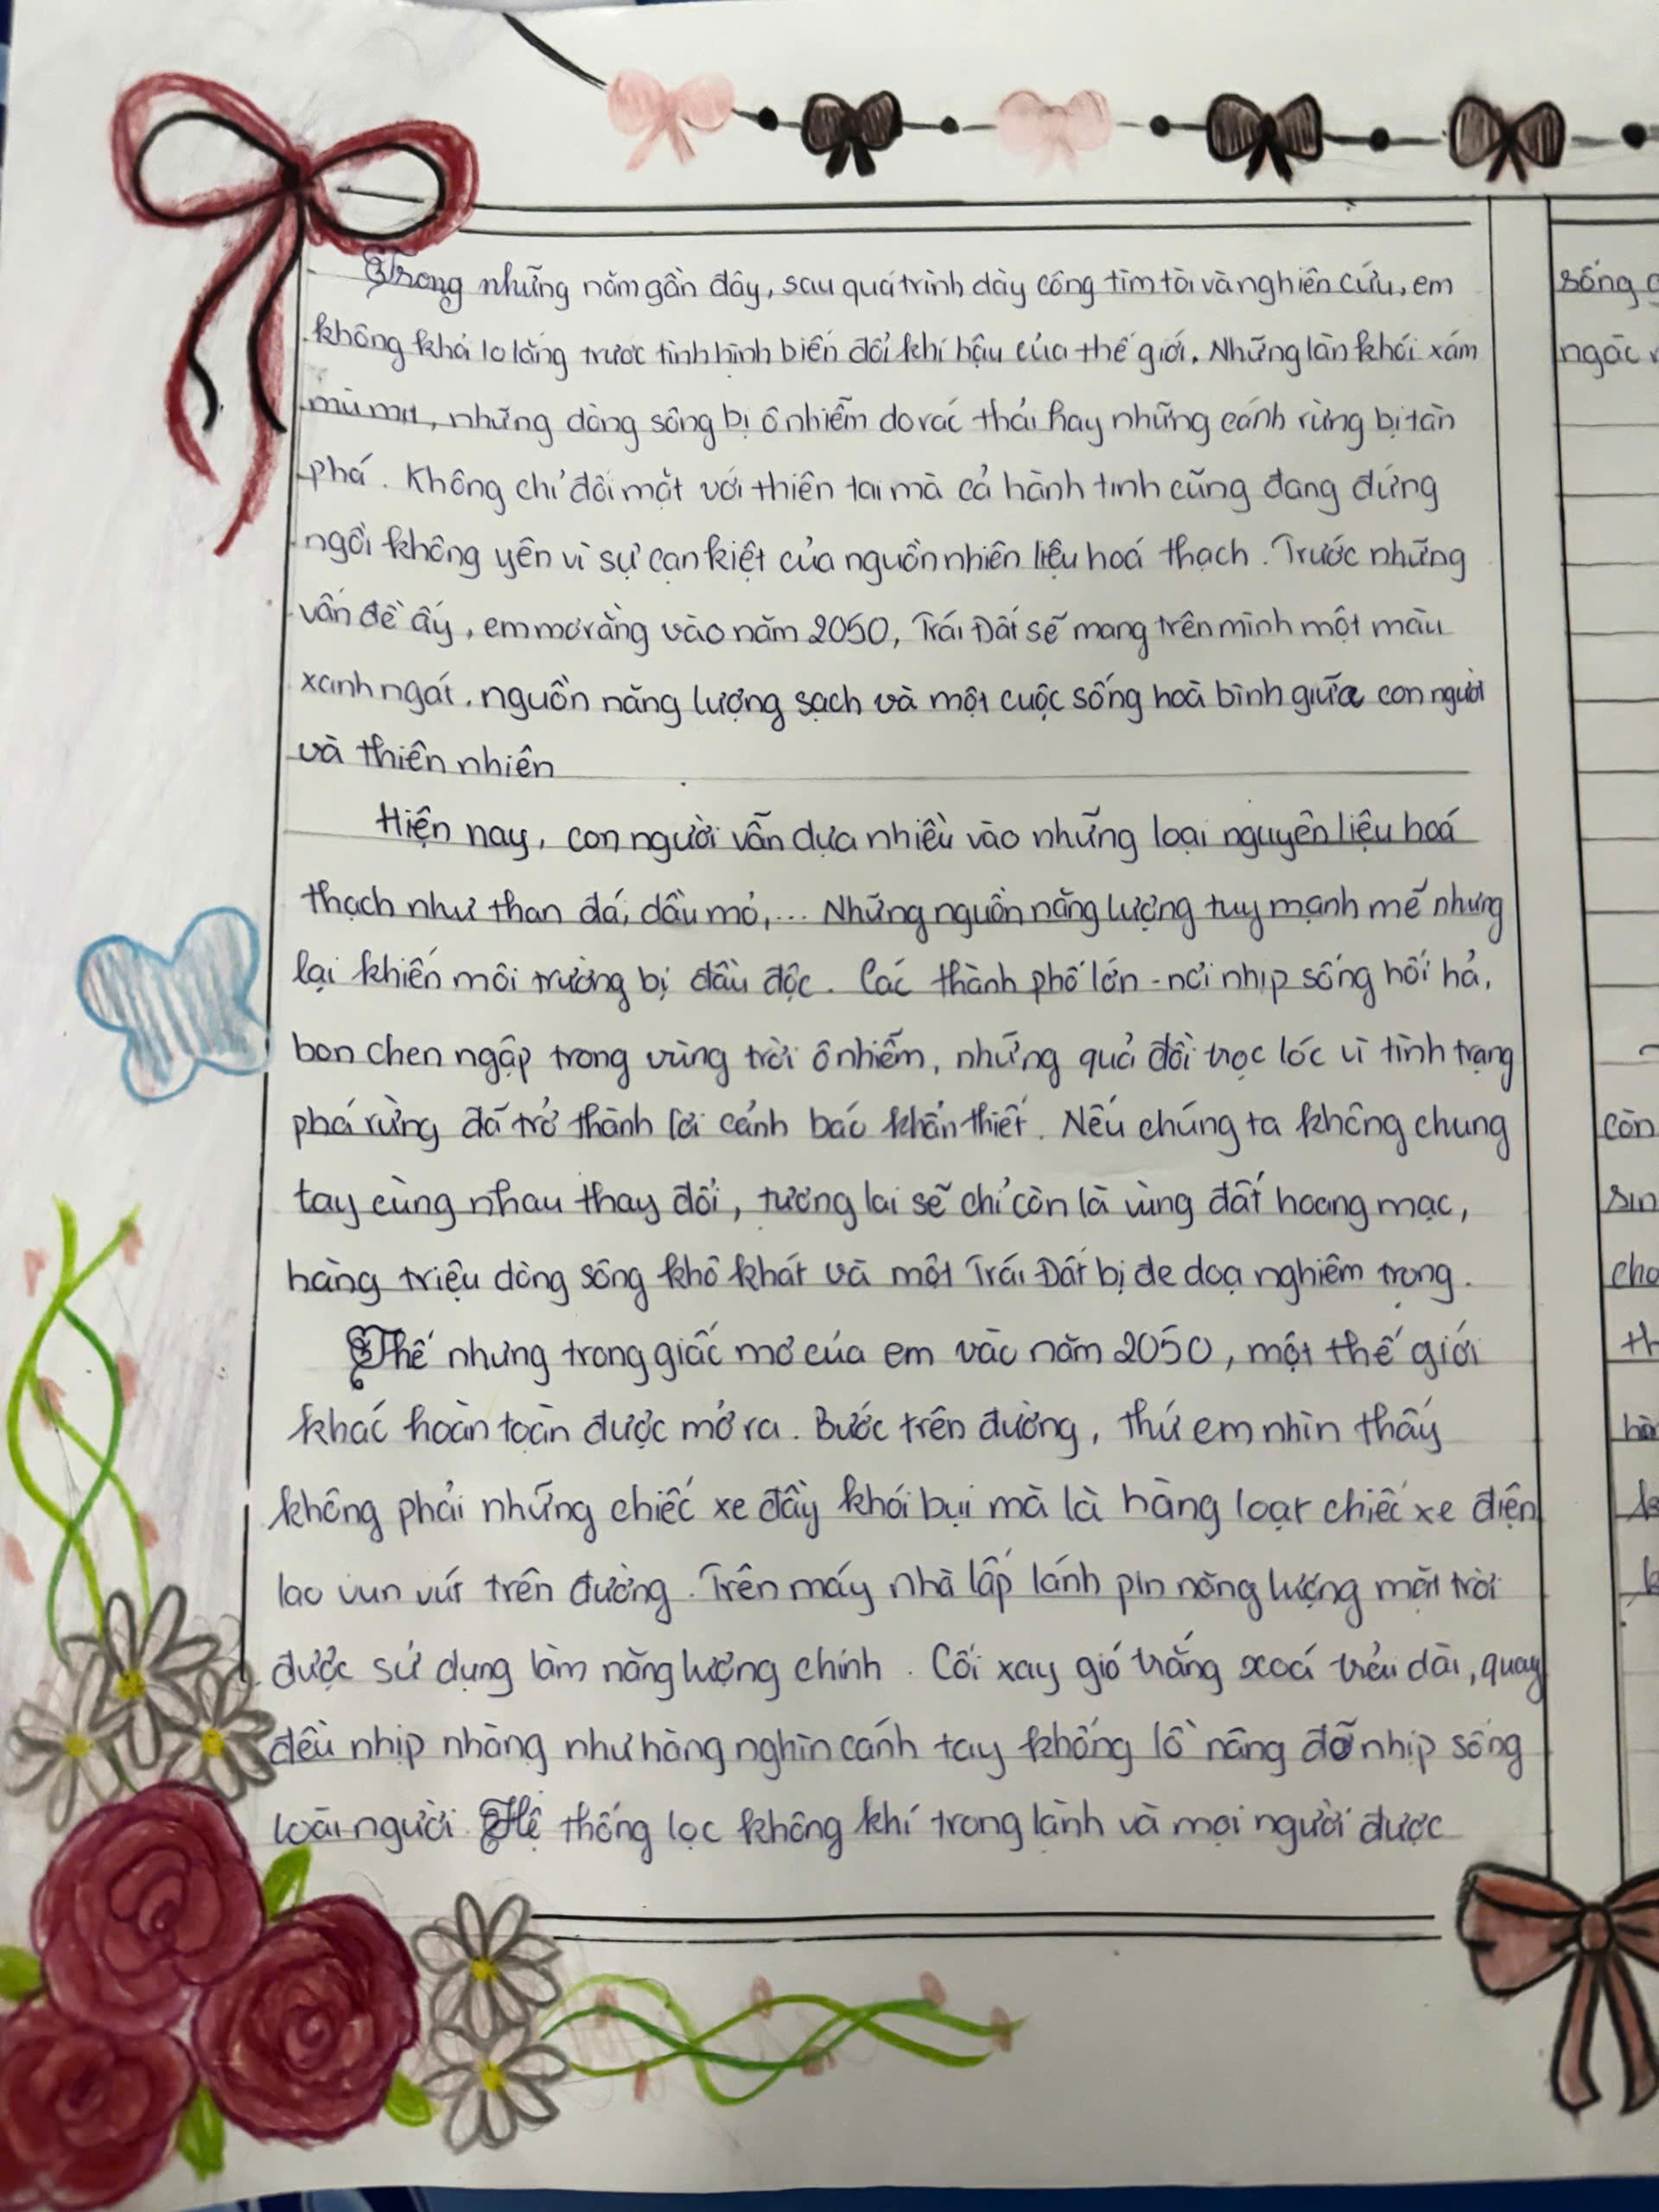 Trong những năm gần đây, sau quá trình dày công tìm tòi và nghiên cứu, em
không khả lo lắng trước tình hình biến đổi khí hậu của thế giới. Những làn khói xám
mù mịt, những dòng sông bị ô nhiễm do rác thải hay những cánh rừng bị tàn
phá. Không chỉ đối mặt với thiên tai mà cả hành tinh cũng đang đứng
ngồi không yên vì sự cạn kiệt của nguồn nhiên liệu hoá thạch. Trước những
vấn đề ấy, em mơ rằng vào năm 2050, Trái Đất sẽ mang trên mình một màu
xanh ngát, nguồn năng lượng sạch và một cuộc sống hoà bình giữa con người
và thiên nhiên
Hiện nay, con người vẫn dựa nhiều vào những loại nguyên liệu hoá
thạch như than đá, dầu mỏ,... Những nguồn năng lượng tuy mạnh mẽ nhưng
lại khiến môi trường bị đầu độc. Các thành phố lớn - nơi nhịp sống hối hả,
bon chen ngập trong vùng trời ô nhiễm, những quả đồi trọc lóc vì tình trạng
phá rừng đã trở thành lời cảnh báo khẩn thiết. Nếu chúng ta không chung
tay cùng nhau thay đổi, tương lai sẽ chỉ còn là vùng đất hoang mạc,
hàng triệu dòng sông khô khát và một Trái Đất bị đe doạ nghiêm trọng.
Thế nhưng trong giấc mơ của em vào năm 2050, một thế giới
khác hoàn toàn được mở ra. Bước trên đường, thứ em nhìn thấy
không phải những chiếc xe đầy khói bụi mà là hàng loạt chiếc xe điện
lao vun vút trên đường. Trên máy nhà lấp lánh pin năng lượng mặt trời
được sử dụng làm năng lượng chính. Cối xay gió trắng xoá trải dài, quay
đều nhịp nhàng như hàng nghìn cánh tay khổng lồ nâng đỡ nhịp sống
loài người. Hệ thống lọc không khí trong lành và mọi người được
sống
ngác
còn
sin
cho
th